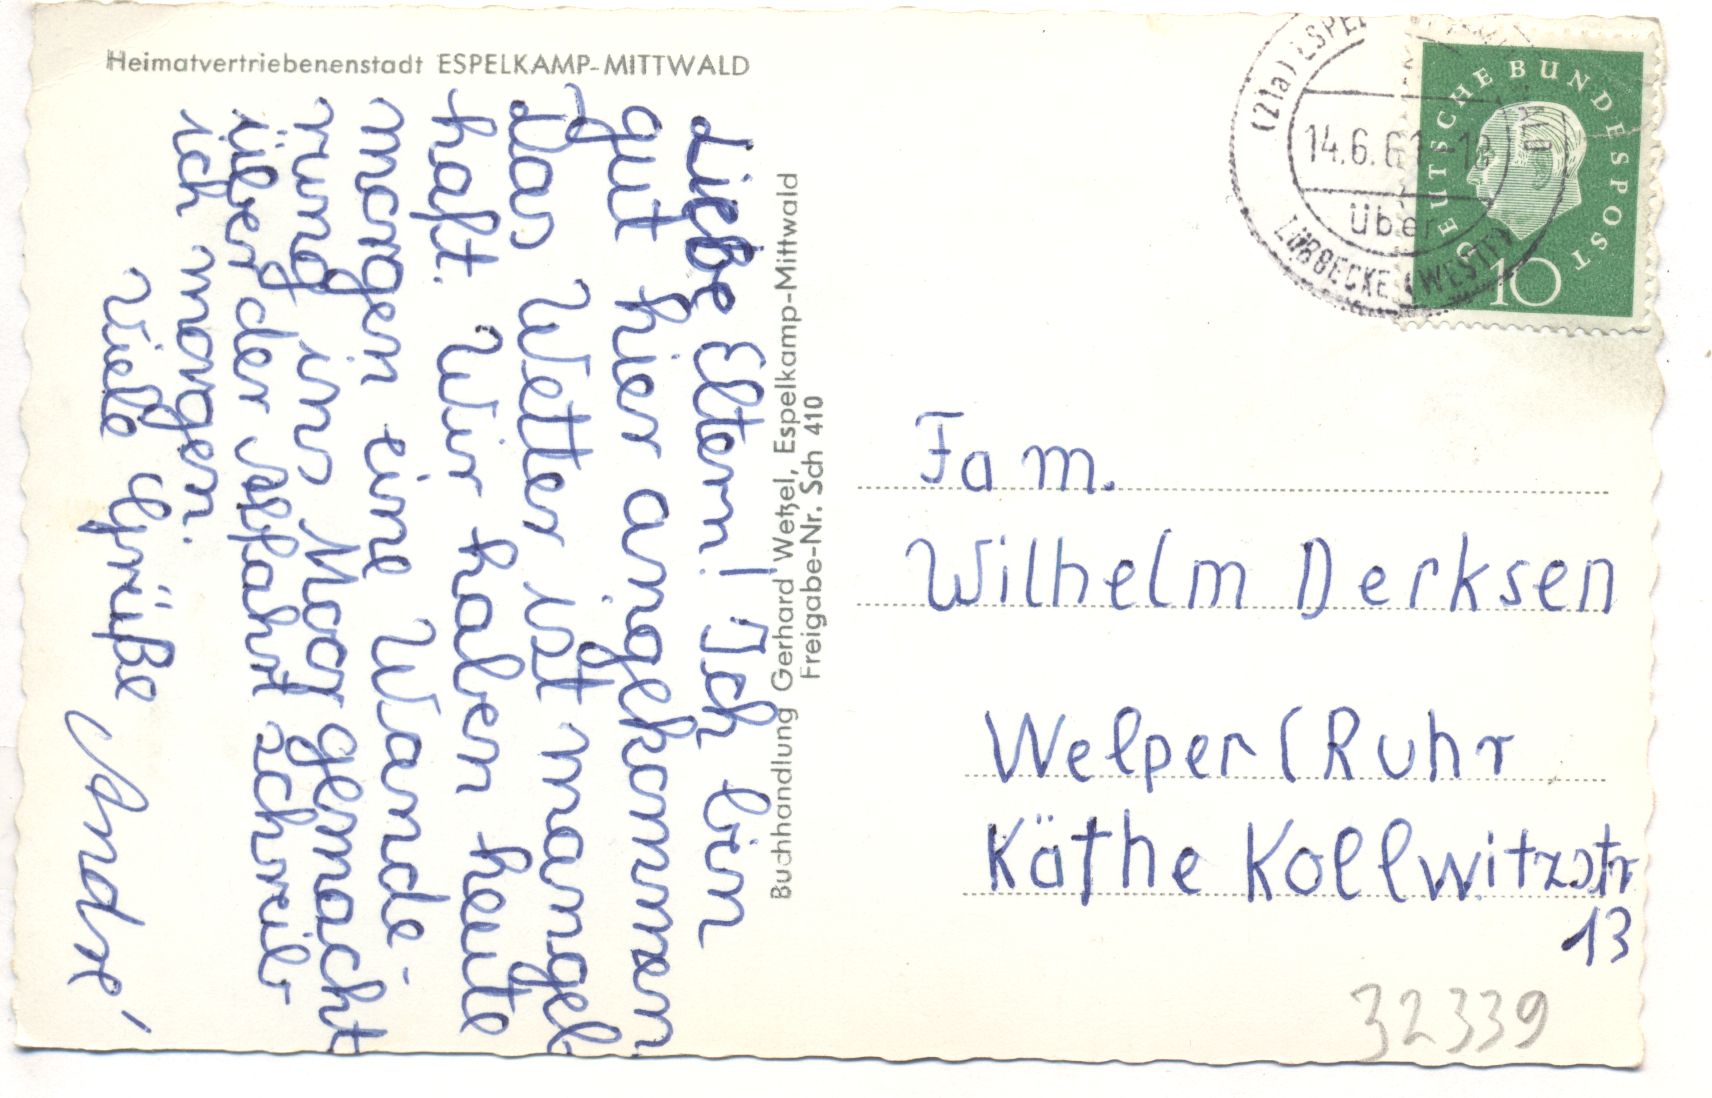 Heimatvertriebenenstadt ESPELKAMP-MITTWALD
Liebe Eltern! Ich bin
gut hier angekommen
Das Wetter ist mangel
haft. Wir haben heute
morgen eine Wande-
rung ins Moor gemacht
über der Abfahrt schreib-
ich morgen.
Viele Grüße
André
Buchhandlung Gerhard Wetzel, Espelkamp-Mittwald
Freigabe-Nr. Sch 410
DEUTSCHE BUNDESPOST
10
(21a) ESPELKAMP-MITTWALD
14.6.61-18
über
LÜBBECKE (WESTF)
Fam.
Wilhelm Derksen
Welper (Ruhr
Käthe Kollwitzstr
13
32339